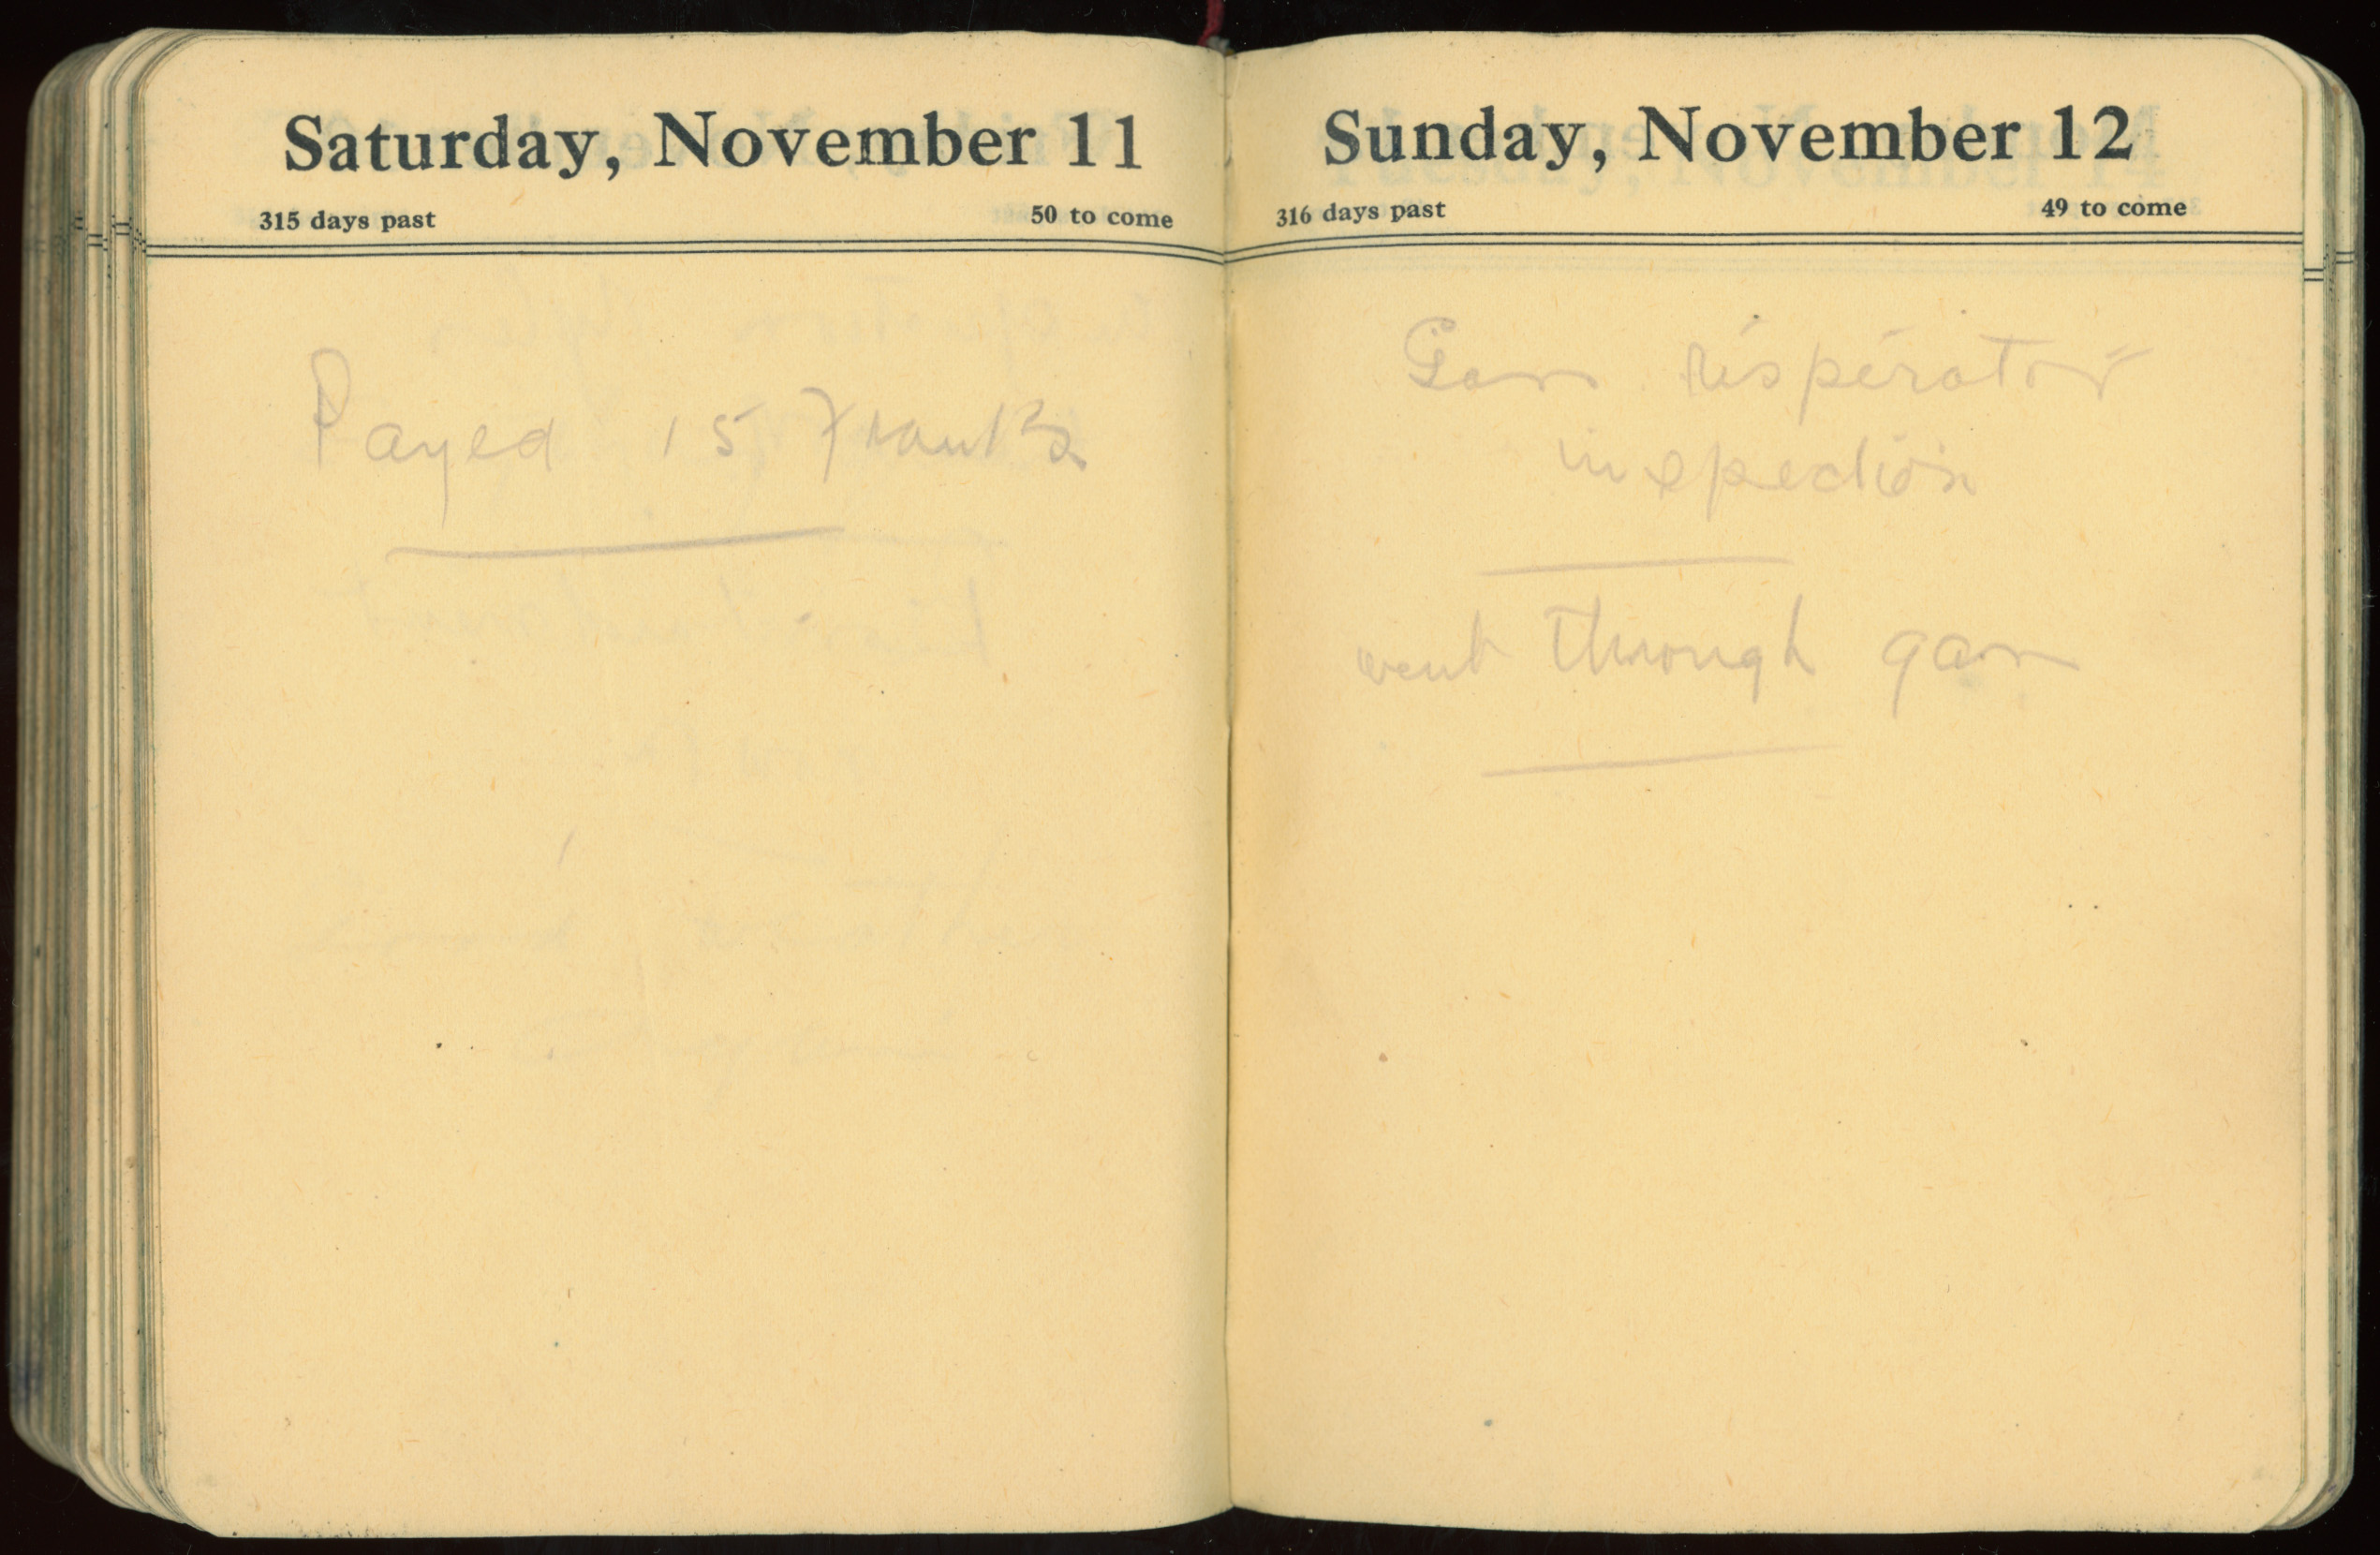 Saturday, November 11
315 days past 50 to come
Payed 15 Franks
Sunday, November 12
316 days past 49 to come
Gas risperator
inspection
went through gas